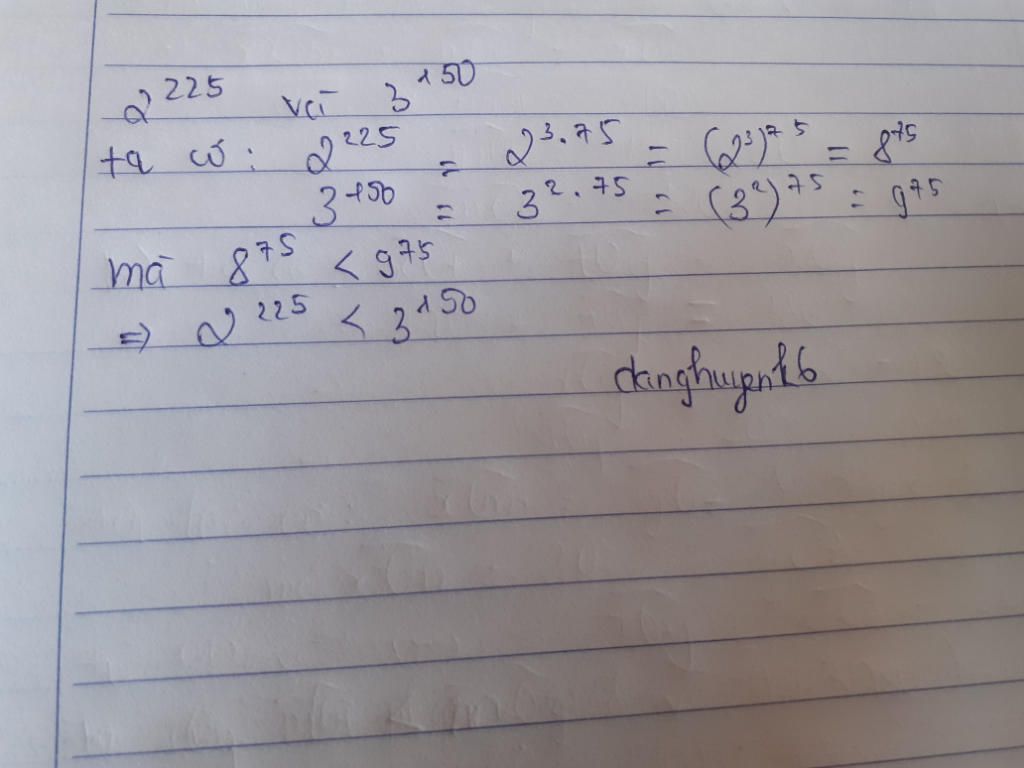 2²²⁵ và 3¹⁵⁰
ta có: 2²²⁵ = 2³·⁷⁵ = (2³)⁷⁵ = 8⁷⁵
3¹⁵⁰ = 3²·⁷⁵ = (3²)⁷⁵ = 9⁷⁵
mà 8⁷⁵ < 9⁷⁵
⇒ 2²²⁵ < 3¹⁵⁰